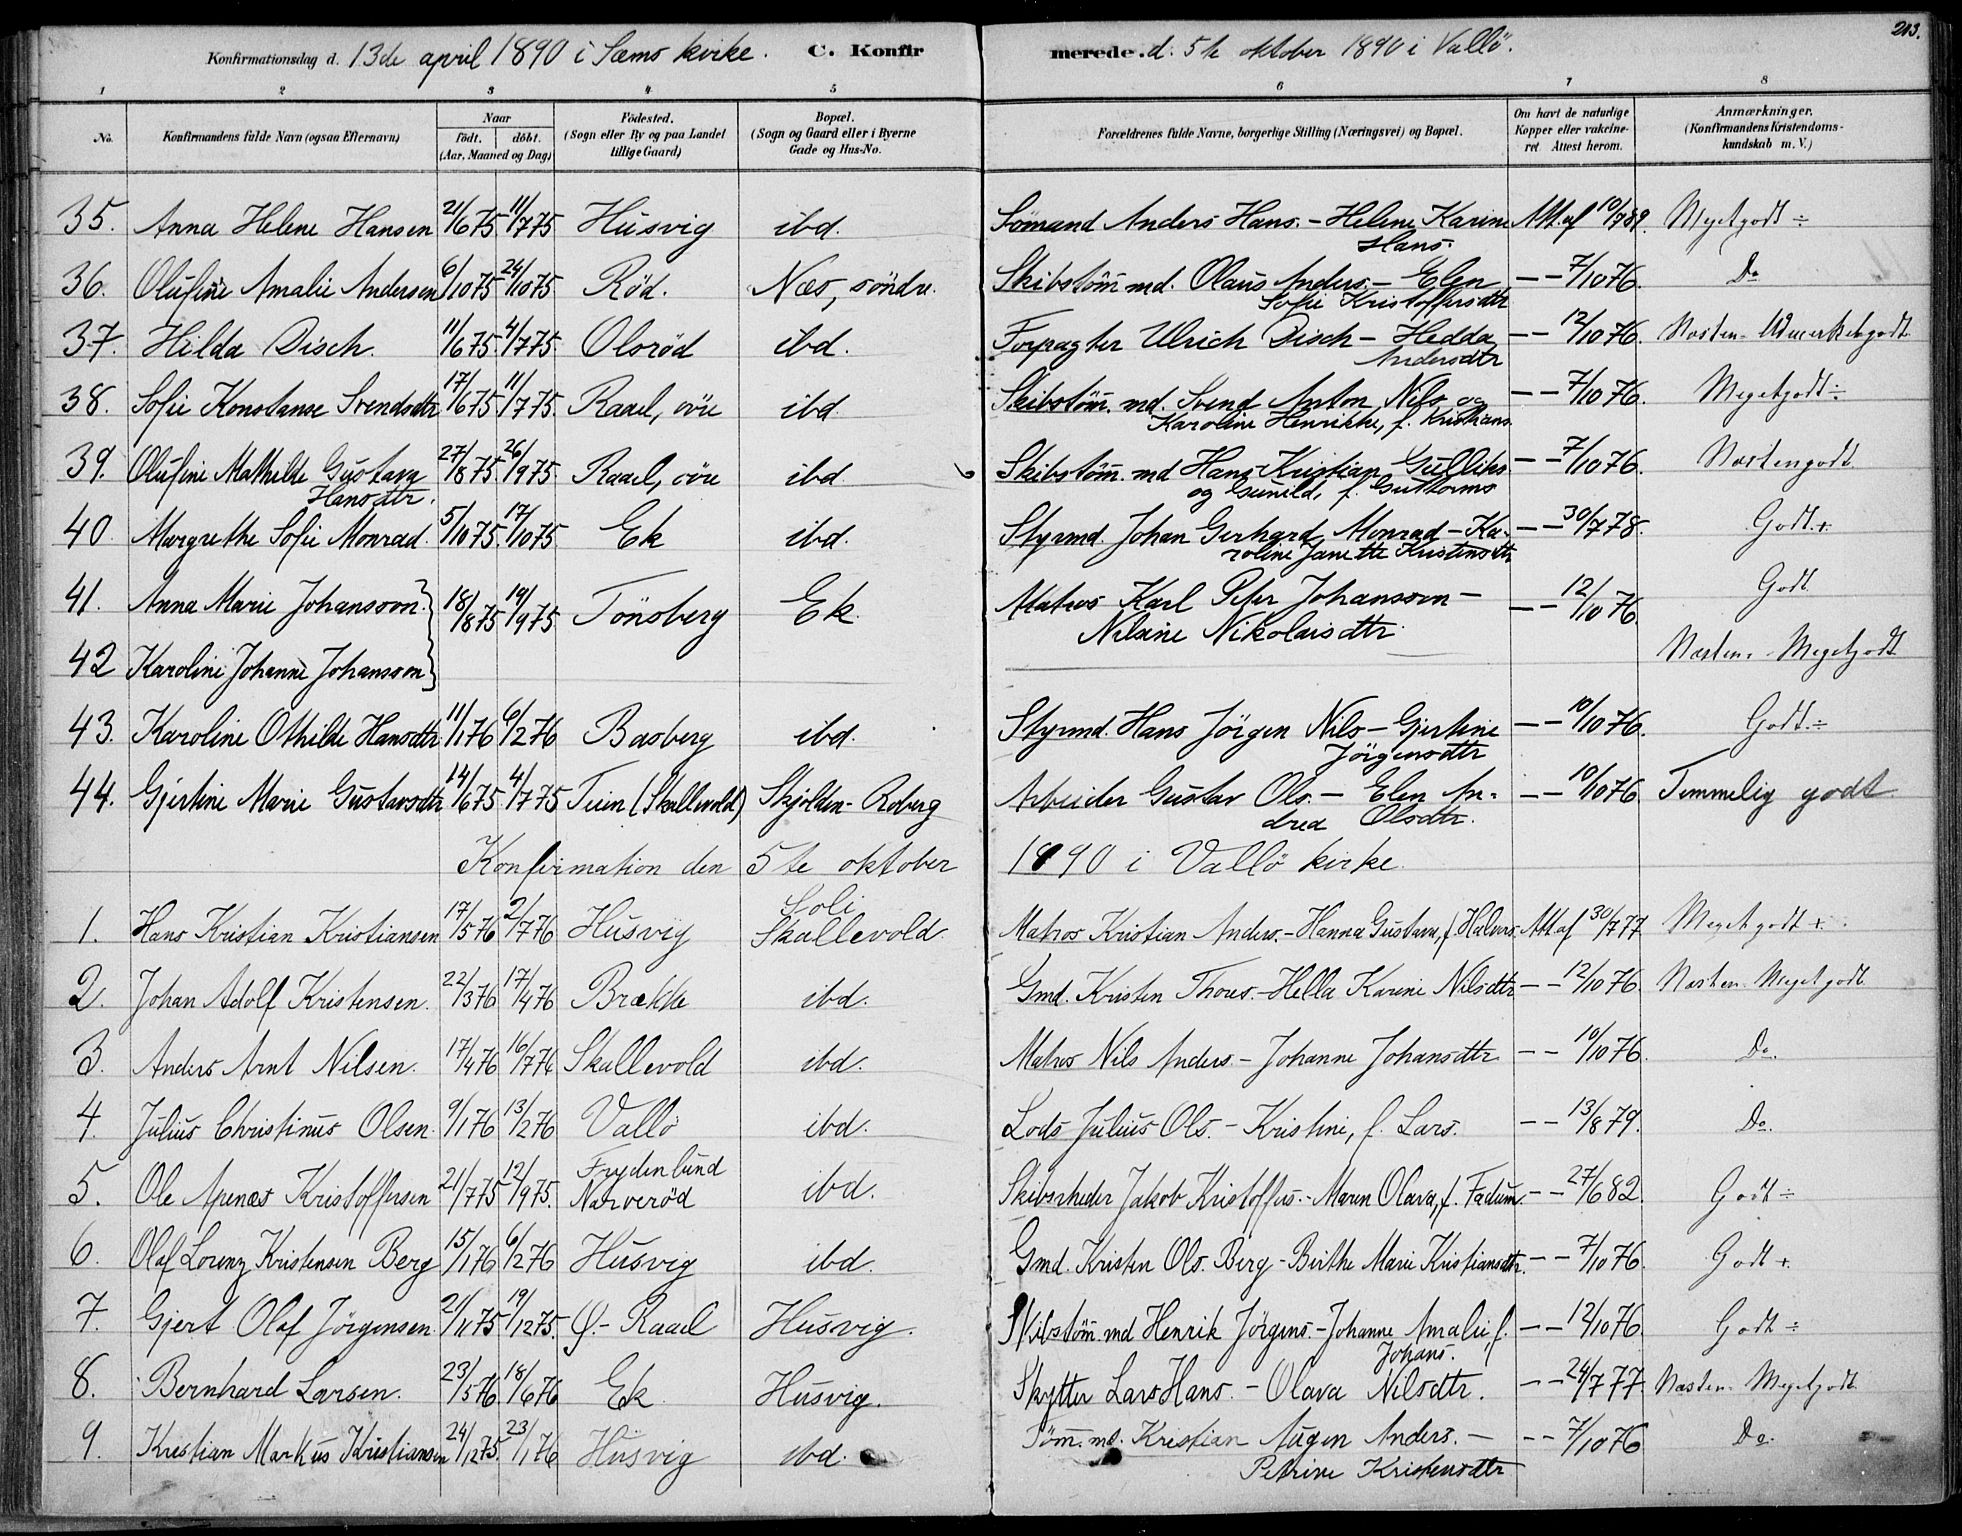 213.
Konfirmationsdag d. 13de april 1890 i Sæms kirke. C. Konfirmerede. d. 5te oktober 1890 i Vallö.
1 2 3 4 5 6 7 8
No. Konfirmandens fulde Navn (ogsaa Efternavn) Naar födt. döbt. (Aar, Maaned og Dag) Födested. (Sogn eller By og paa Landet tillige Gaard) Bopæl. (Sogn og Gaard eller i Byerne Gade og Hus-No. Forældrenes fulde Navne, borgerlige Stilling (Næringsvei) og Bopæl. Om havt de naturlige Kopper eller vakcineret Attest herom. Anmærkninger. (Konfirmandens Kristendomskundskab m. V.)
35. Anna Helene Hansen 21/6 75. 11/7 75 Husvig ibd. Sömand Anders Hans. - Helene Karine Att. af 10/7 89. Megetgodt ÷
Hans.
36. Olufine Amalie Andersen 6/10 75 24/10 75 Röd. Næs, söndre. Skibstöm̄md. Olaus Anders. - Elen — — 7/10 76. Do
Sofie Kristoffersdtr
37. Hilda Disch. 11/6 75 4/7 75. Olsröd ibd. Forpagter Ulrich Disch - Hedda — — 12/10 76. Næsten - Udmærketgodt
Andersdtr
38. Sofie Konstanse Svendsdtr 17/6 75 11/7 75. Raael, övre ibd. Skibstöm̄. md. Svend Anton Nils og — — 7/10 76. Megetgodt ÷
Karoline Henrikke, f. Kristians.
39. Olufine Mathilde Gustava 27/8 75. 26/9 75 Raael, övre ibd. Skibstöm̄. md Hans Kristian Gulliks — — 7/10 76. Næstengodt
Hansdtr. og Gunild, f. Guttorms
40. Margrethe Sofie Monrad. 5/10 75. 17/10 75 Ek ibd. Styrmd. Johan Gerhard Monrad - Ka- — — 30/7 78. Godt +
roline Janette Kristensdtr
41. Anna Marie Johansson } 18/8 75 19/9 75 Tönsberg Ek. Matros Karl Peter Johansson - — — 12/10 76 Godt
Nilsine Nikolaisdtr.
42 Karoline Johanne Johansson } Næsten - Megetgodt
43. Karoline Othilde Hansdtr 11/1 76 6/2 76 Basberg ibd. Styrmd. Hans Jörgen Nils - Gjertine — — 10/10 76. Godt. ÷
Jörgensdtr
44. Gjertine Marie Gustavsdtr 14/6 75. 4/7 75 Teien (Skallevold) Skjolden - Roberg Arbeider Gustav Ols. - Elen An- — — 10/10 76. Temmelig godt
drea Olsdtr.
Konfirmation den 5te oktober 1890 i Vallö kirke.
1. Hans Kristian Kristiansen 17/5 76 2/7 76 Husvig Soli Skallevold Matros Kristian Anders. - Hanna Gustava, f. Halvors. Att af 30/7 77 Megetgodt +.
2. Johan Adolf Kristensen. 22/3 76 17/4 76 Brække ibd. Gmd. Kristen Thors. - Hella Karine Nilsdtr — — 12/10 76. Næsten - Megetgodt
3. Anders Arnt Nilsen. 17/4 76 16/7 76 Skallevold ibd. Matros Nils Anders - Johanne Johansdtr — — 10/10 76. Do.
4. Julius Christinus Olsen. 9/1 76 13/2 76 Vallö ibd. Lods Julius Ols. - Kristine, f. Lars. — — 13/8 79. Do.
5. Ole Apenæs Kristoffersen 21/7 75 12/9 75. Frydenlund Narveröd ibd. Skibsrheder Jakob Kristoffers. - Maren Olava, f. Fadum — — 27/6 82. Godt ÷
6. Olaf Lorenz Kristensen Berg 15/1 76 6/2 76 Husvig ibd. Gmd. Kristen Ols. Berg - Birthe Marie Kristiansdtr. — — 7/10 76. Godt +.
7. Gjert Olaf Jörgensen 21/11 75 19/12 75. Ö. - Raael Husvig. Skibstöm̄. md Henrik Jörgens. - Johanne Amalie, f. — — 12/10 76. Godt ÷
Johans.
8. Bernhard Larsen. 23/5 76 18/6 76 Ek Husvig. Skytter Lars Hans. - Olava Nilsdtr. — — 24/7 77. Næsten - Megetgodt
9. Kristian Markus Kristiansen 24/12 75. 23/1 76 Husvig ibd. Töm̄. md. Kristian Augen Anders. - — — 7/10 76 Do.
Petrine Kristensdtr